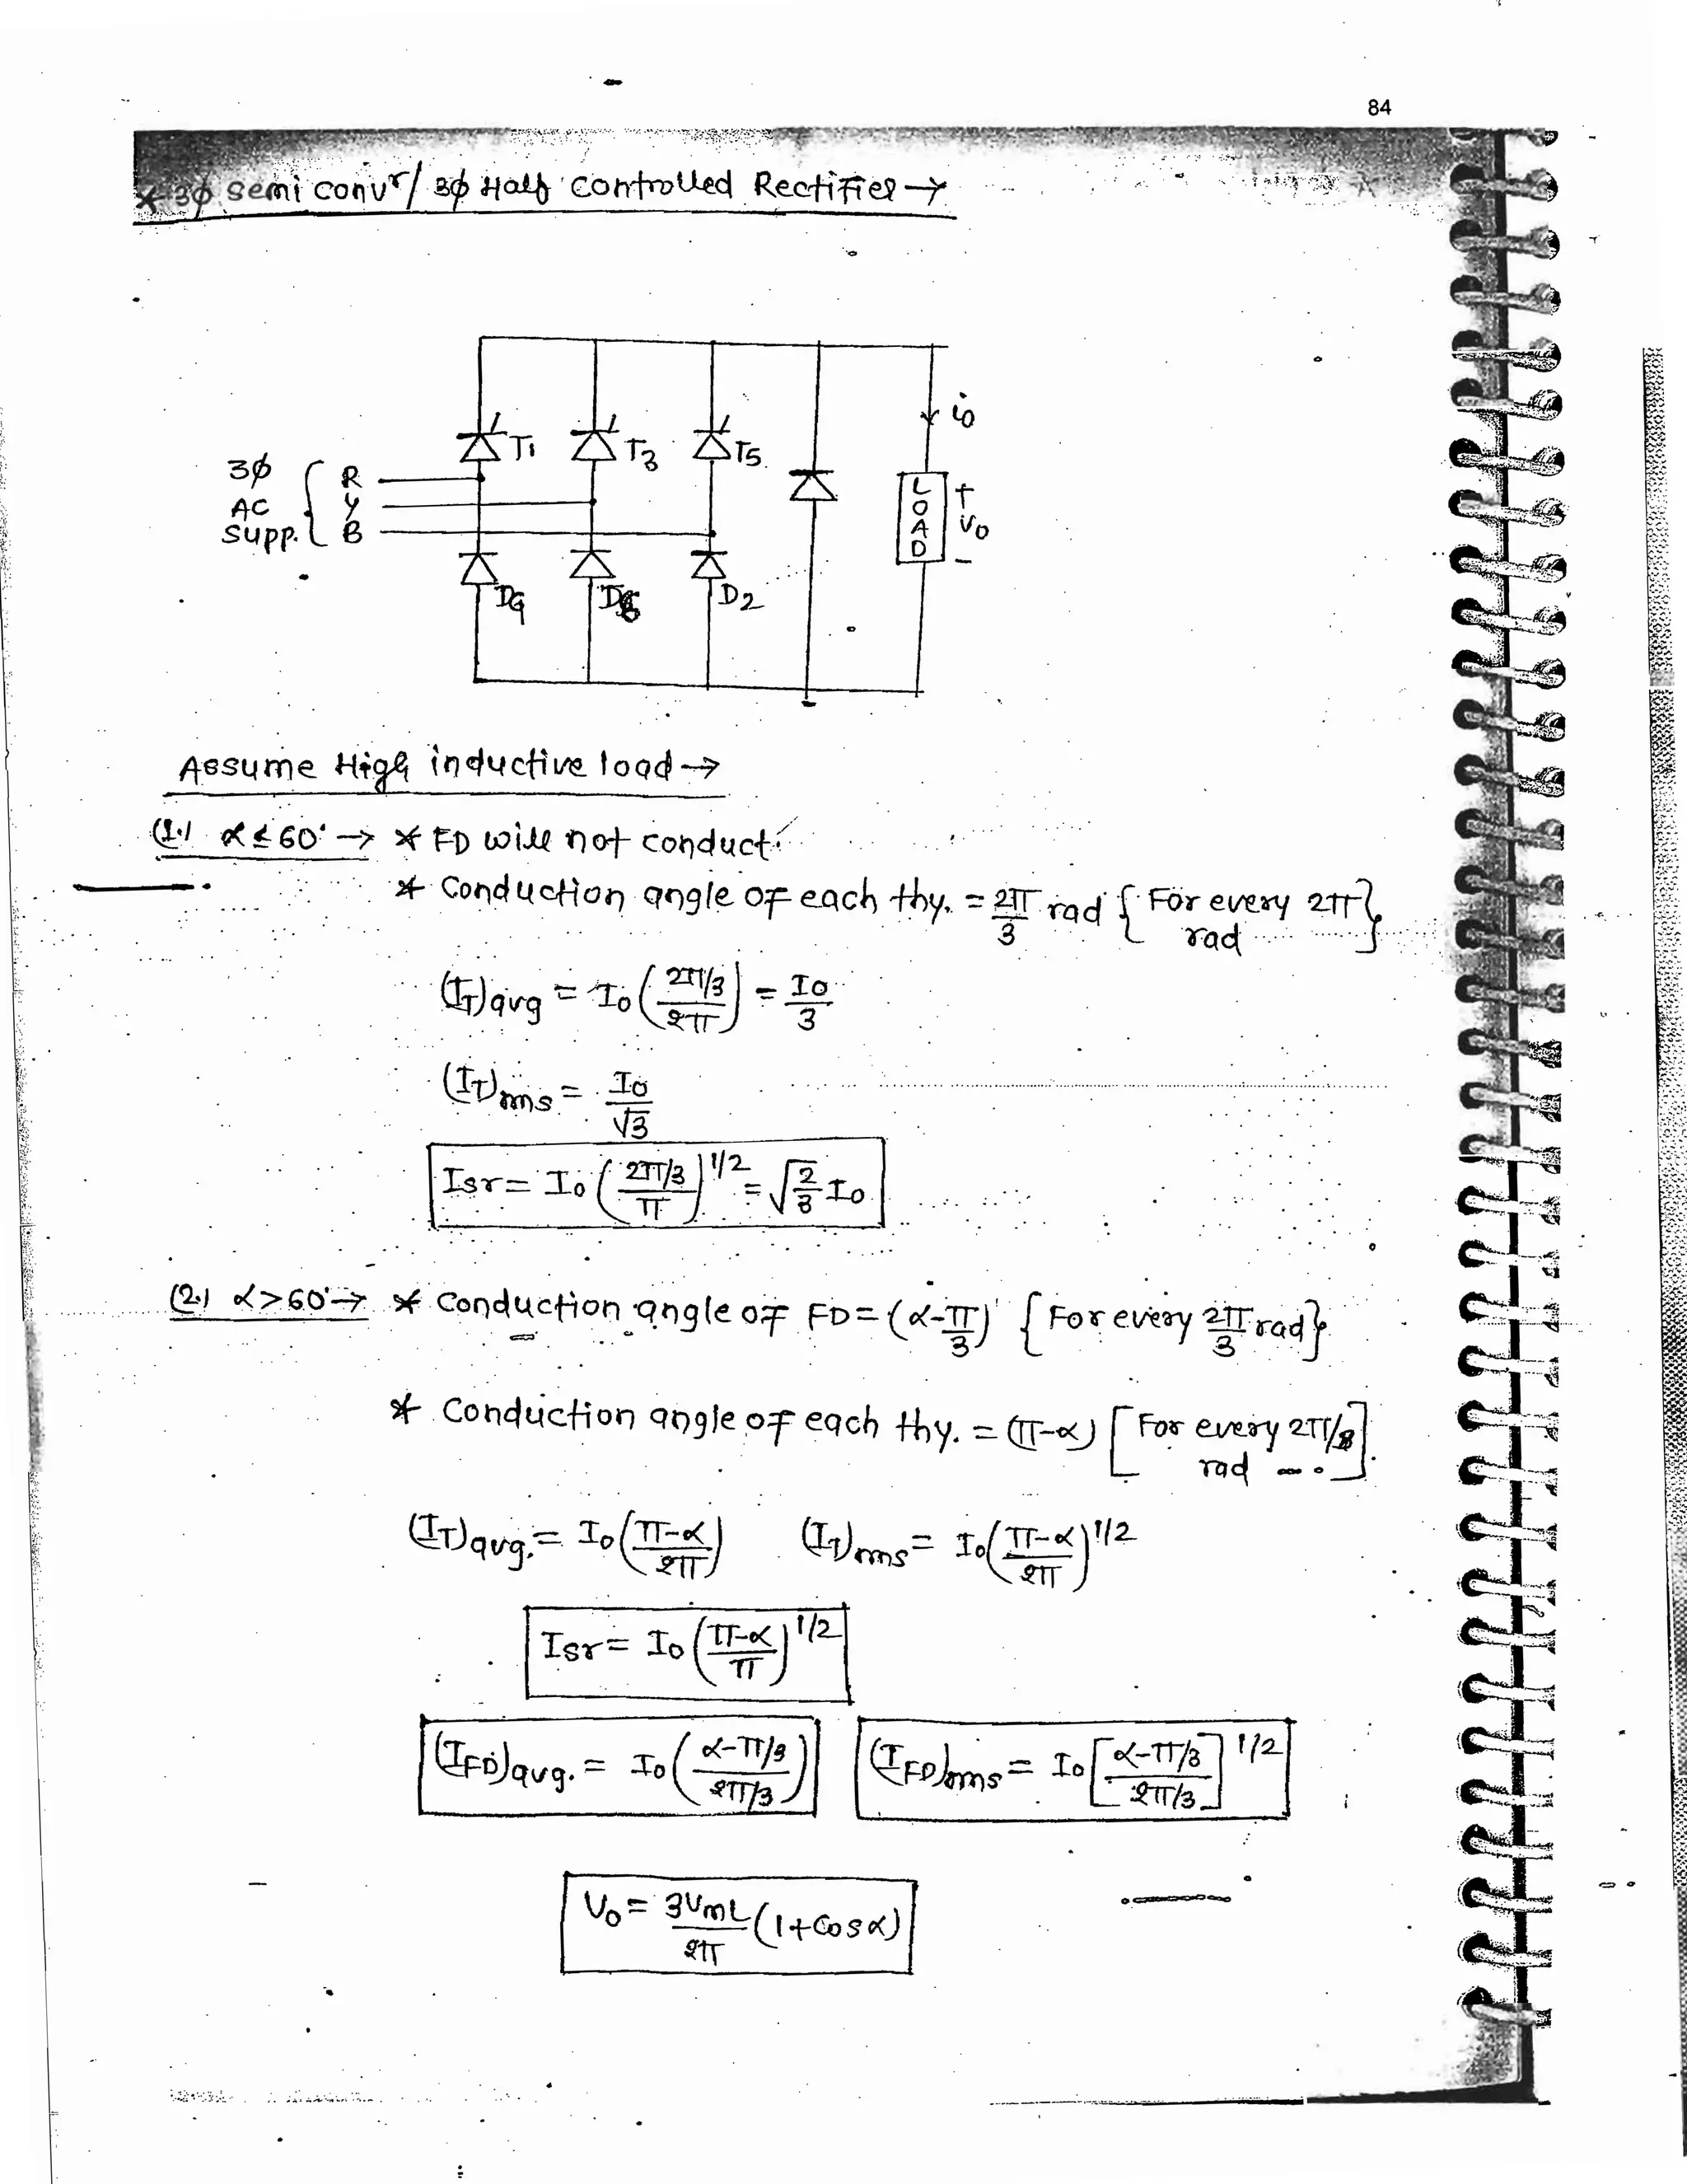 84
* 3ϕ semi convr/ 3ϕ Half controlled Rectifier →
T1 T3 T5
io
3ϕ AC Supp. { R Y B
LOAD
+ Vo -
D4 D6 D2
Assume High inductive load →
(1.) α ≤ 60° → * FD will not conduct.
* Conduction angle of each thy. = 2π/3 rad { For every 2π rad }
(IT)avg = Io ( 2π/3 / 2π ) = Io/3
(IT)rms = Io/√3
Isr = Io ( 2π/3 / π )^1/2 = √(2/3) Io
(2.) α > 60° → * Conduction angle of FD = (α - π/3) { For every 2π/3 rad }
* Conduction angle of each thy. = (π-α) [ For every 2π/3 rad ]
(IT)avg. = Io ( π-α / 2π ) (IT)rms = Io ( π-α / 2π )^1/2
Isr = Io ( π-α / π )^1/2
(IFD)avg. = Io ( α-π/3 / 2π/3 ) (IFD)rms = Io [ α-π/3 / 2π/3 ]^1/2
Vo = 3VmL/2π (1+cosα)